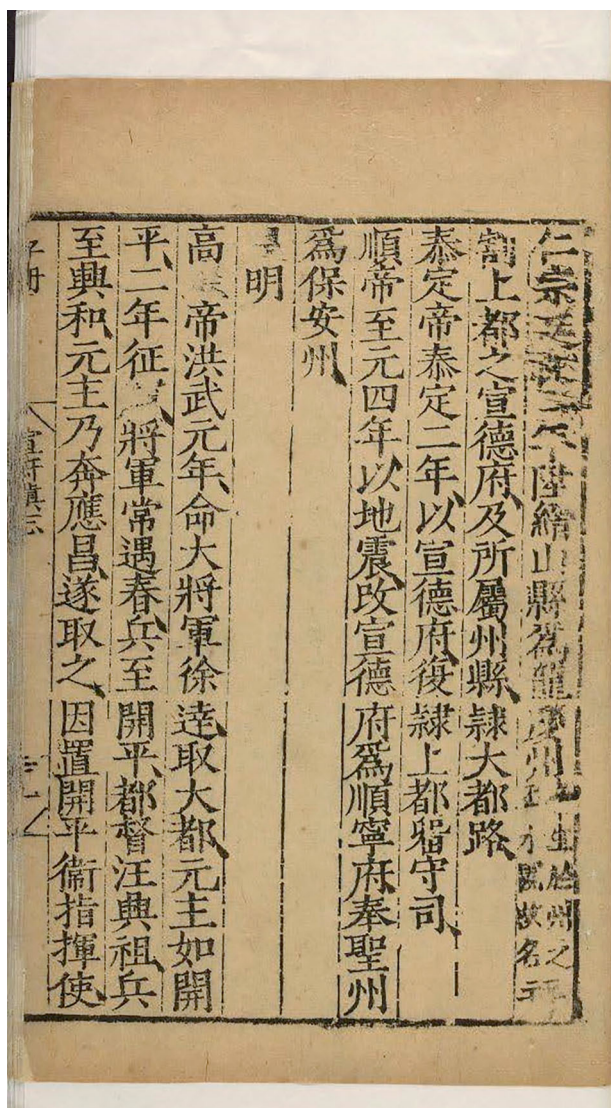 仁宗延祐二年陞縉山縣為龍慶州
生於州之
割上都之宣德府及所屬州縣隸大都路
泰定帝泰定二年以宣德府復隸上都留守司
順帝至元四年以地震改宣德府為順寧府奉聖州
為保安州
明
高帝洪武元年命大將軍徐達取大都元主如開
平二年征將軍常遇春兵至開平都督汪興祖兵
至興和元主乃奔應昌遂取之因置開平衞指揮使
宣府鎮志